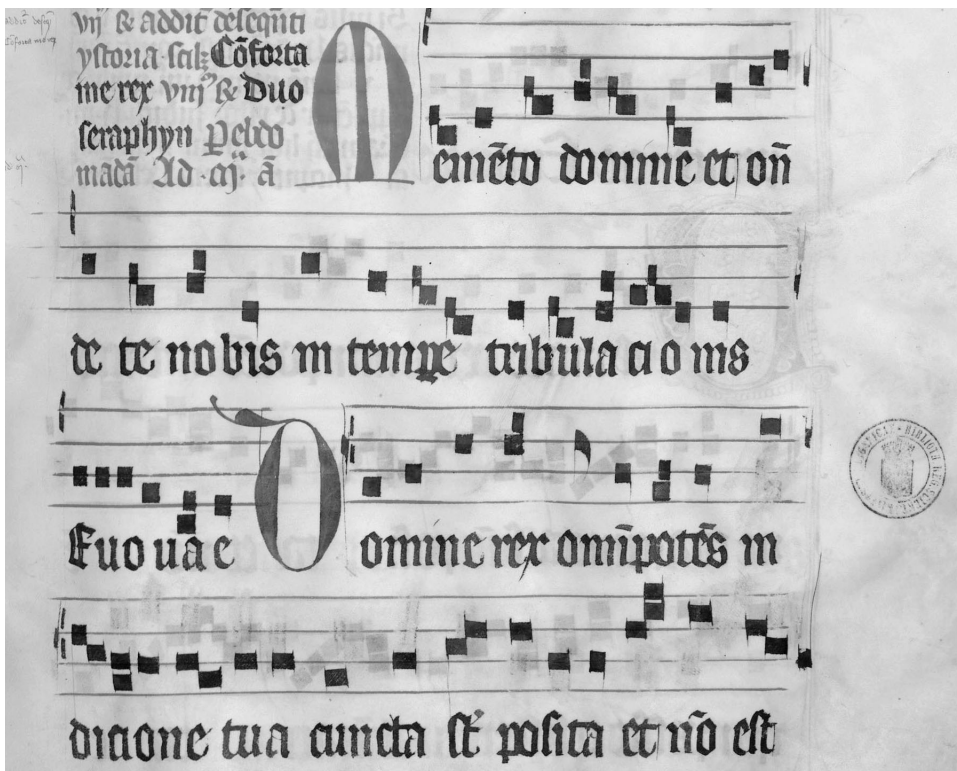 vij ℞ addit̄ deseqn̄ti
ystoria scilꝫ Cōforta
me rex viij ℞ Duo
seraphyn ꝑ ebdo
madā Ad cij ā
Memēto domine et om̄
de te nobis in temꝑe tribulacionis
Euouae Domine rex om̄ipotēs in
dicione tua cuncta st̄ posita et nō est